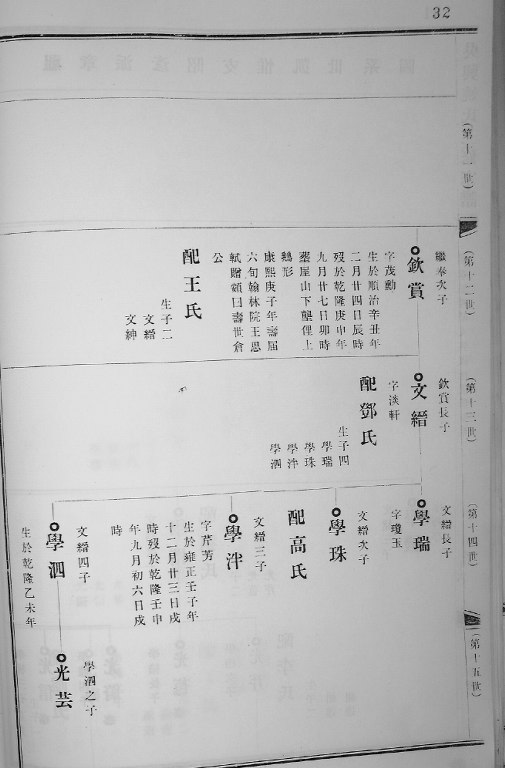 32
(第十一世)
(第十二世)
繼奉次子
欽賞
字茂勳
生於順治辛丑年
二月廿四日辰時
歿於乾隆庚申年
九月廿七日卯時
葬崖山下壟俚上
鵝形
康熙庚子年壽屆
六旬翰林院王思
軾贈額曰壽世倉
公
配王氏
生子二
文縉
文紳
(第十三世)
欽賞長子
文縉
字淡軒
配鄧氏
生子四
學瑞
學珠
學泮
學泗
(第十四世)
文縉長子
學瑞
字瓊玉
文縉次子
學珠
配高氏
文縉三子
學泮
字芹芳
生於雍正壬子年
十二月廿三日戌
時歿於乾隆壬申
年九月初六日戌
時
文縉四子
學泗
生於乾隆乙未年
(第十五世)
學泗之子
光芸